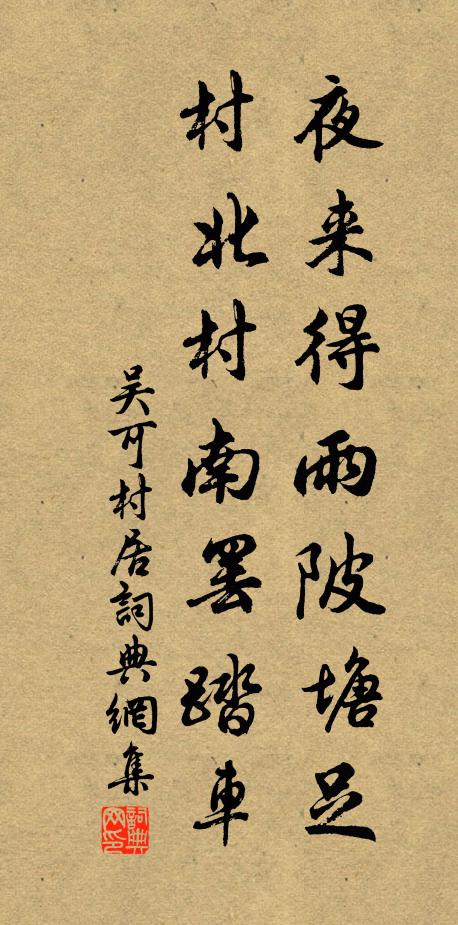 夜来得雨陂塘足
村北村南罢踏車
吴可村居詞典網集